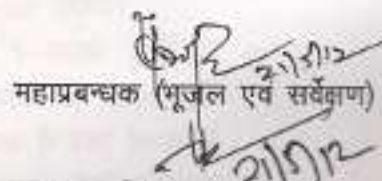 21/5/12
महाप्रबन्धक (भूजल एवं सर्वेक्षण)
21/5/12